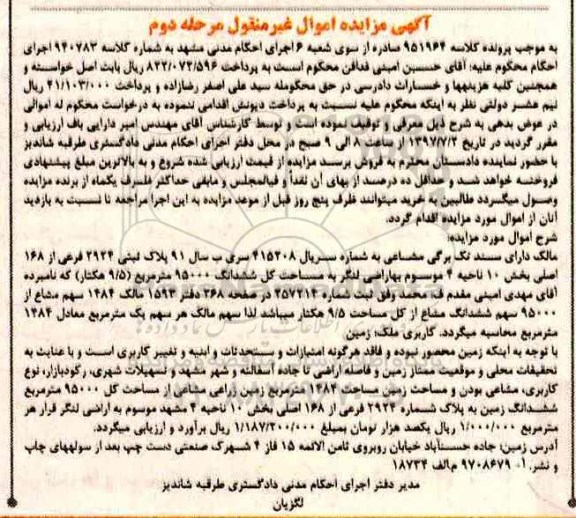 آگهی مزایده اموال غیرمنقول مرحله دوم
به موجب پرونده کلاسه ۹۵۱۹۶۴ صادره از سوی شعبه ۶ اجرای احکام مدنی مشهد به شماره کلاسه ۹۴۰۷۸۳ اجرای
احکام محکوم علیه: آقای حسین امینی فدافن محکوم است به پرداخت ۸۲۲/۰۷۲/۵۹۶ ریال بابت اصل خواسته و
همچنین کلیه هزینهها و خسارات دادرسی در حق محکومله سید علی اصغر رضازاده و پرداخت ۴۱/۱۰۳/۰۰۰ ریال
نیم عشر دولتی نظر به اینکه محکوم علیه نسبت به پرداخت دیونش اقدامی ننموده به درخواست محکوم له اموالی
در عوض بدهی به شرح ذیل معرفی و توقیف نموده است و توسط کارشناس آقای مهندس امیر دارایی باف ارزیابی و
مقرر گردید در تاریخ ۱۳۹۷/۷/۲ از ساعت ۸ الی ۹ صبح در محل دفتر اجرای احکام مدنی دادگستری طرقبه شاندیز
با حضور نماینده دادستان محترم به فروش برسد مزایده از قیمت ارزیابی شده شروع و به بالاترین مبلغ پیشنهادی
فروخته خواهد شد و حداقل ده درصد از بهای آن نقدا و فیالمجلس و مابقی حداکثر ظرف یکماه از برنده مزایده
وصول میگردد طالبین به خرید میتوانند ظرف پنج روز قبل از موعد مزایده به این اجرا مراجعه تا نسبت به بازدید
آنان از اموال مورد مزایده اقدام گردد.
شرح اموال مورد مزایده:
مالک دارای سند تک برگی مشاعی به شماره سریال ۴۱۵۲۰۸ سری ب سال ۹۱ پلاک ثبتی ۲۹۲۴ فرعی از ۱۶۸
اصلی بخش ۱۰ ناحیه ۴ موسوم بهاراضی لنگر به مساحت کل ششدانگ ۹۵۰۰۰ مترمربع (۹/۵ هکتار) که نامبرده
آقای مهدی امینی مقدم ف محمد وفق ثبت شماره ۲۵۷۲۱۴ در صفحه ۲۶۸ دفتر ۱۵۹۳ مالک ۱۴۸۴ سهم مشاع از
۹۵۰۰۰ سهم ششدانگ مشاع از کل مساحت ۹/۵ هکتار میباشد لذا سهم مالک هر سهم یک مترمربع معادل ۱۴۸۴
مترمربع محاسبه میگردد. کاربری ملک: زمین
با توجه به اینکه زمین محصور نبوده و فاقد هرگونه امتیازات و مستحدثات و ابنیه و تغییر کاربری است و با عنایت به
تحقیقات محلی و موقعیت ممتاز زمین و فاصله اراضی تا جاده آسفالته و شهر مشهد و تسهیلات شهری، رکودبازار، نوع
کاربری، مشاعی بودن و مساحت زمین مساحت ۱۴۸۴ مترمربع زمین زراعی مشاعی از مساحت کل ۹۵۰۰۰ مترمربع
ششدانگ زمین به پلاک شماره ۲۹۲۴ فرعی از ۱۶۸ اصلی بخش ۱۰ ناحیه ۴ مشهد موسوم به اراضی لنگر قرار هر
مترمربع ۱/۰۰۰/۰۰۰ ریال یکصد هزار تومان بمبلغ ۱/۱۸۷/۲۰۰/۰۰۰ ریال برآورد و ارزیابی میگردد.
آدرس زمین: جاده حسنآباد خیابان روبروی ثامن الائمه ۱۵ فاز ۴ شهرک صنعتی دست چپ بعد از سولههای چاپ
و نشر. آ- ۹۷۰۸۶۷۹ م.الف ۱۸۷۳۴
مدیر دفتر اجرای احکام مدنی دادگستری طرقبه شاندیز
لگزیان